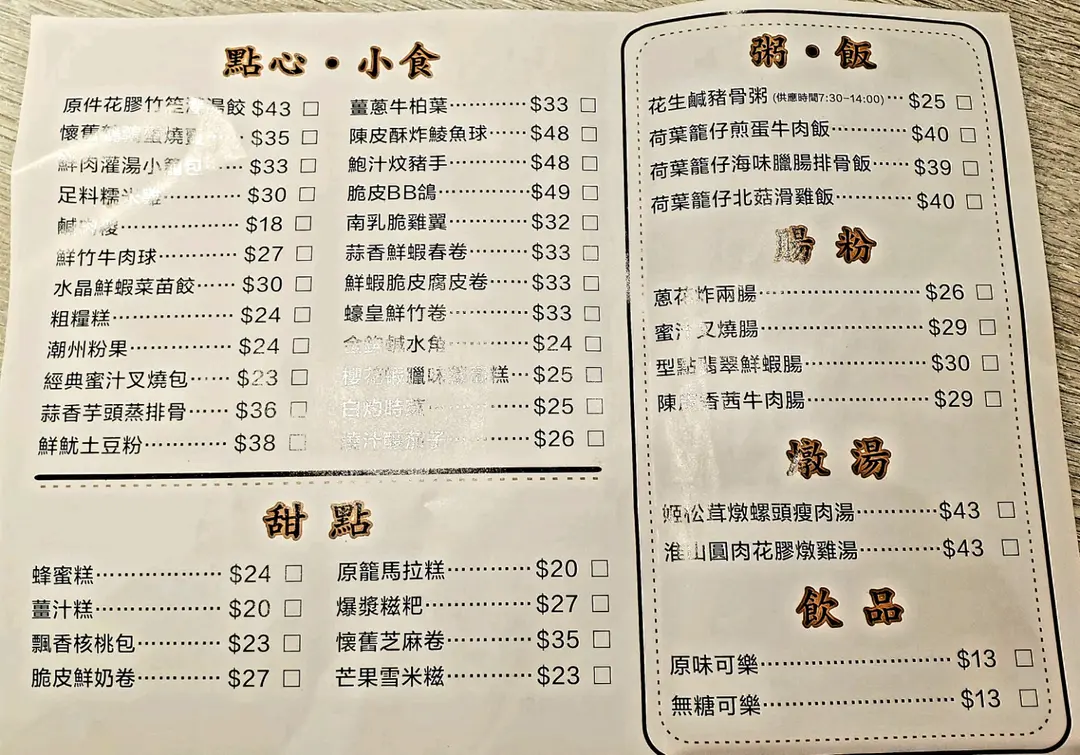 點心·小食
原件花膠竹笙灌湯餃 $43
懷舊鵪鶉蛋燒賣 $35
鮮肉灌湯小籠包 $33
足料糯米雞 $30
鹹肉糭 $18
鮮竹牛肉球 $27
水晶鮮蝦菜苗餃 $30
粗糧糕 $24
潮州粉果 $24
經典蜜汁叉燒包 $23
蒜香芋頭蒸排骨 $36
鮮魷土豆粉 $38
薑蔥牛柏葉 $33
陳皮酥炸鯪魚球 $48
鮑汁炆豬手 $48
脆皮BB鴿 $49
南乳脆雞翼 $32
蒜香鮮蝦春卷 $33
鮮蝦脆皮腐皮卷 $33
蠔皇鮮竹卷 $33
鹹水角 $24
櫻花蝦臘味糕 $25
白灼時蔬 $25
子 $26
甜點
蜂蜜糕 $24
薑汁糕 $20
飄香核桃包 $23
脆皮鮮奶卷 $27
原籠馬拉糕 $20
爆漿糍粑 $27
懷舊芝麻卷 $35
芒果雪米糍 $23
粥·飯
花生鹹豬骨粥 (供應時間7:30-14:00) $25
荷葉籠仔煎蛋牛肉飯 $40
荷葉籠仔海味臘腸排骨飯 $39
荷葉籠仔北菇滑雞飯 $40
腸粉
蔥花炸兩腸 $26
蜜汁叉燒腸 $29
型點翡翠鮮蝦腸 $30
陳皮香茜牛肉腸 $29
燉湯
姬松茸燉螺頭瘦肉湯 $43
淮山圓肉花膠燉雞湯 $43
飲品
原味可樂 $13
無糖可樂 $13